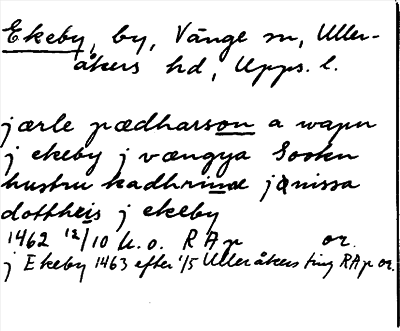 Ekeby, by, Vänge sn, Uller-
åkers hd, Upps. l.
jærle pædharson a wapn
j ekeby j vængya Sookn
hustru kadhrinæ jönissa
dotthris j ekeby
1462 12/10 u. o. RAp or.
j Ekeby 1463 efter 1/5 Ulleråkers ting RAp or.